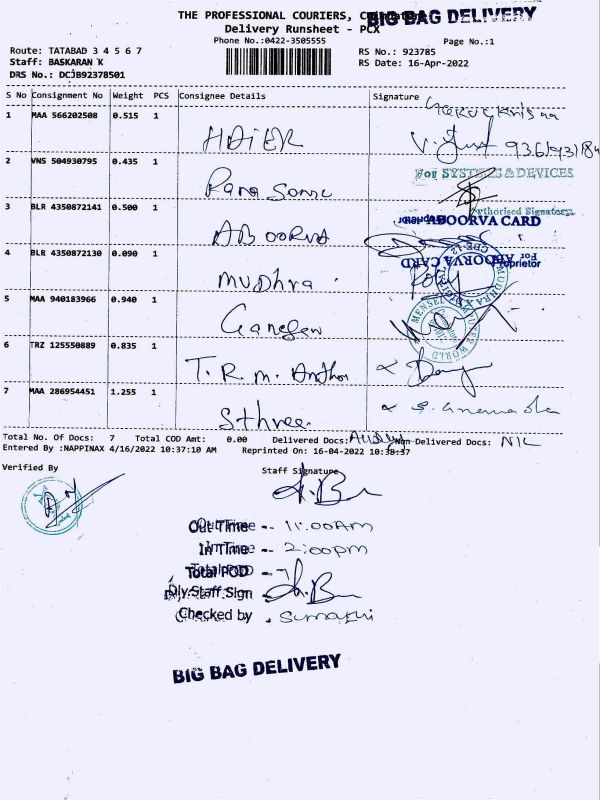 THE PROFESSIONAL COURIERS,
BIG BAG DELIVERY
Delivery Runsheet - PCX
Phone No.:0422-3505555
Page No.:1
Route: TATABAD 3 4 5 6 7
RS No.: 923785
Staff: BASKARAN K
RS Date: 16-Apr-2022
DRS No.: DCJB92378501
S No Consignment No Weight PCS Consignee Details Signature
1 MAA 566202508 0.515 1 HAIER
2 VNS 504930795 0.435 1 Panasonic
For SYSTEMS & DEVICES
Authorised Signatory
3 BLR 4350872141 0.500 1 ABOORVA
For ABOORVA CARD
Proprietor
4 BLR 4350872130 0.090 1 Mudhra
For ABOORVA CARD
Proprietor
5 MAA 940183966 0.940 1 Ganesan
6 TRZ 125550889 0.835 1 T. R. M.
7 MAA 286954451 1.255 1 Sthree
Total No. Of Docs: 7 Total COD Amt: 0.00 Delivered Docs: Non-Delivered Docs: NIL
Entered By :NAPPINAX 4/16/2022 10:37:10 AM Reprinted On: 16-04-2022 10:38:37
Verified By Staff Signature
Out Time -- 11:00Am
In Time -- 2:00pm
Total POD -- 7
Dly.Staff Sign
Checked by . Sumathi
BIG BAG DELIVERY